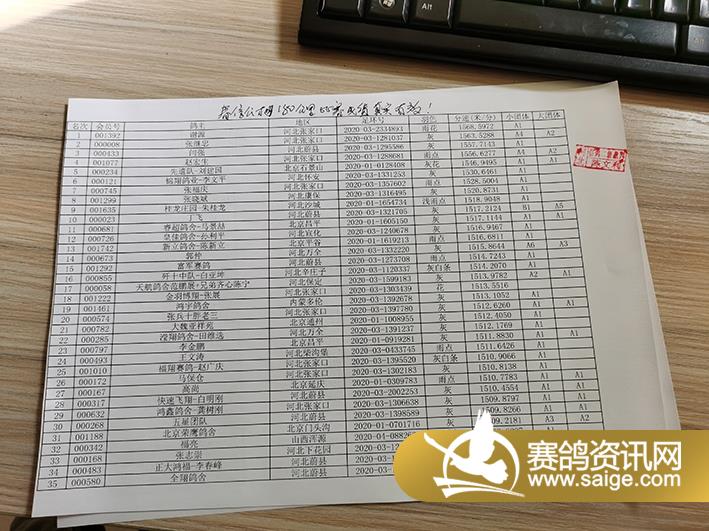 名次 会员号 鸽主 地区 足环号 羽色 分速(米/分) 小团体 大团体
1 001392 谢源 河北张家口 2020-03-2334893 雨花 1568.5972 A1
2 000008 张继忠 河北张家口 2020-03-1281037 灰 1563.5288 A4 A2
3 000433 闫强 河北蔚县 2020-03-1295586 灰 1557.7143 A1
4 001077 赵宏生 河北张家口 2020-03-1288681 雨点 1556.6277 A4 A2
5 000234 先遣队-刘建国 北京石景山 2020-01-0128408 灰花 1546.9495 A1
6 000121 锦翔鸽业-李文平 河北怀安 2020-03-1331253 灰 1530.6461 A1
7 000745 张福庆 河北张家口 2020-03-1357602 雨点 1528.5004 A1
8 001299 张晓斌 河北康保 2020-03-1316495 灰 1520.8731 A1
9 001635 桂龙庄园-朱桂龙 河北沙城 2020-01-1654734 浅雨点 1518.9048 A1
10 000023 丁飞 河北蔚县 2020-03-1321705 灰 1517.2124 B1 A5
11 000681 春超鸽舍-马景喆 北京昌平 2020-01-1605150 灰 1517.1144 A1 A1
12 000726 皇佳鸽舍-孙利平 河北宣化 2020-03-1240676 灰 1516.9467 A1
13 001742 新立鸽舍-陈新立 北京平谷 2020-01-1619213 雨点 1516.6811 A1
14 000673 郭仲 河北万全 2020-03-1332220 灰 1515.8644 A6 A3
15 001292 富军赛鸽 河北蔚县 2020-03-1273708 雨点 1514.7243 A1
16 000855 歼十中队-白亚坤 河北辛庄子 2020-03-1120337 灰白条 1514.2070 A1
17 000058 天航鸽舍范鹏展/兄弟齐心陈宁 河北保定 2020-03-1599183 灰 1513.9782 A2 A1
18 001222 金羽博翔-张展 河北张家口 2020-03-1303439 花 1513.5516
19 001461 鸿宇鸽舍 内蒙多伦 2020-03-1392678 灰 1513.1052 A1
20 000574 张兵十胆老三 河北张家口 2020-03-1391760 灰 1512.6260 A1
21 000782 大魏亚祥苑 北京通州 2020-01-1008955 灰 1512.4050 A1
22 000285 滢翔鸽舍-田维选 河北万全 2020-03-1391237 灰 1512.1769 A1
23 000797 李金鹏 北京昌平 2020-01-0919281 灰 1511.8830 A1 A1
24 000493 王文涛 河北柴沟堡 2020-03-0433745 雨点 1511.6426 A1
25 001010 福翔赛鸽-赵广庆 河北张家口 2020-03-1395520 灰白条 1510.9066 A1
26 000172 马保仓 河北蔚县 2020-03-1302183 灰 1510.8138 A1
27 000167 高尚 北京延庆 2020-01-0309783 雨点 1510.7783 A1
28 000317 快速飞翔-白明刚 河北蔚县 2020-03-2002253 灰 1510.4554 A2 A1
29 000632 鸿鑫鸽舍-龚树刚 河北张家口 2020-03-1306638 灰 1509.8797 A1
30 000268 五星团队 河北蔚县 2020-03-1398589 灰 1509.8266 A1
31 001188 北京荣鹰鸽舍 北京门头沟 2020-01-0701716 灰 1509.2181 A3 A2
32 000342 福亮 山西浑源
33 000168 张志崇 河北下花园
34 000483 正大鸿福-李春峰 河北蔚县
35 000580 全翔鸽舍 河北蔚县
赛鸽资讯网
www.saige.com